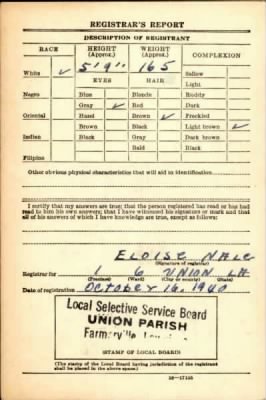 REGISTRAR'S REPORT
DESCRIPTION OF REGISTRANT
RACE HEIGHT (Approx.) WEIGHT (Approx.) COMPLEXION
White ✓ 5'9" 165 Sallow
EYES HAIR Light
Negro Blue Blonde Ruddy
Gray ✓ Red Dark
Oriental Hazel Brown ✓ Freckled
Brown Black Light brown ✓
Indian Black Gray Dark brown
Bald Black
Filipino
Other obvious physical characteristics that will aid in identification
I certify that my answers are true; that the person registered has read or has had
read to him his own answers; that I have witnessed his signature or mark and that
all of his answers of which I have knowledge are true, except as follows:
ELOISE NALE
(Signature of registrar)
Registrar for 1 6 UNION LA
(Precinct) (Ward) (City or county) (State)
Date of registration October 16, 1940
Local Selective Service Board
UNION PARISH
Farmerville,
(STAMP OF LOCAL BOARD)
(The stamp of the Local Board having jurisdiction of the registrant
shall be placed in the above space.)